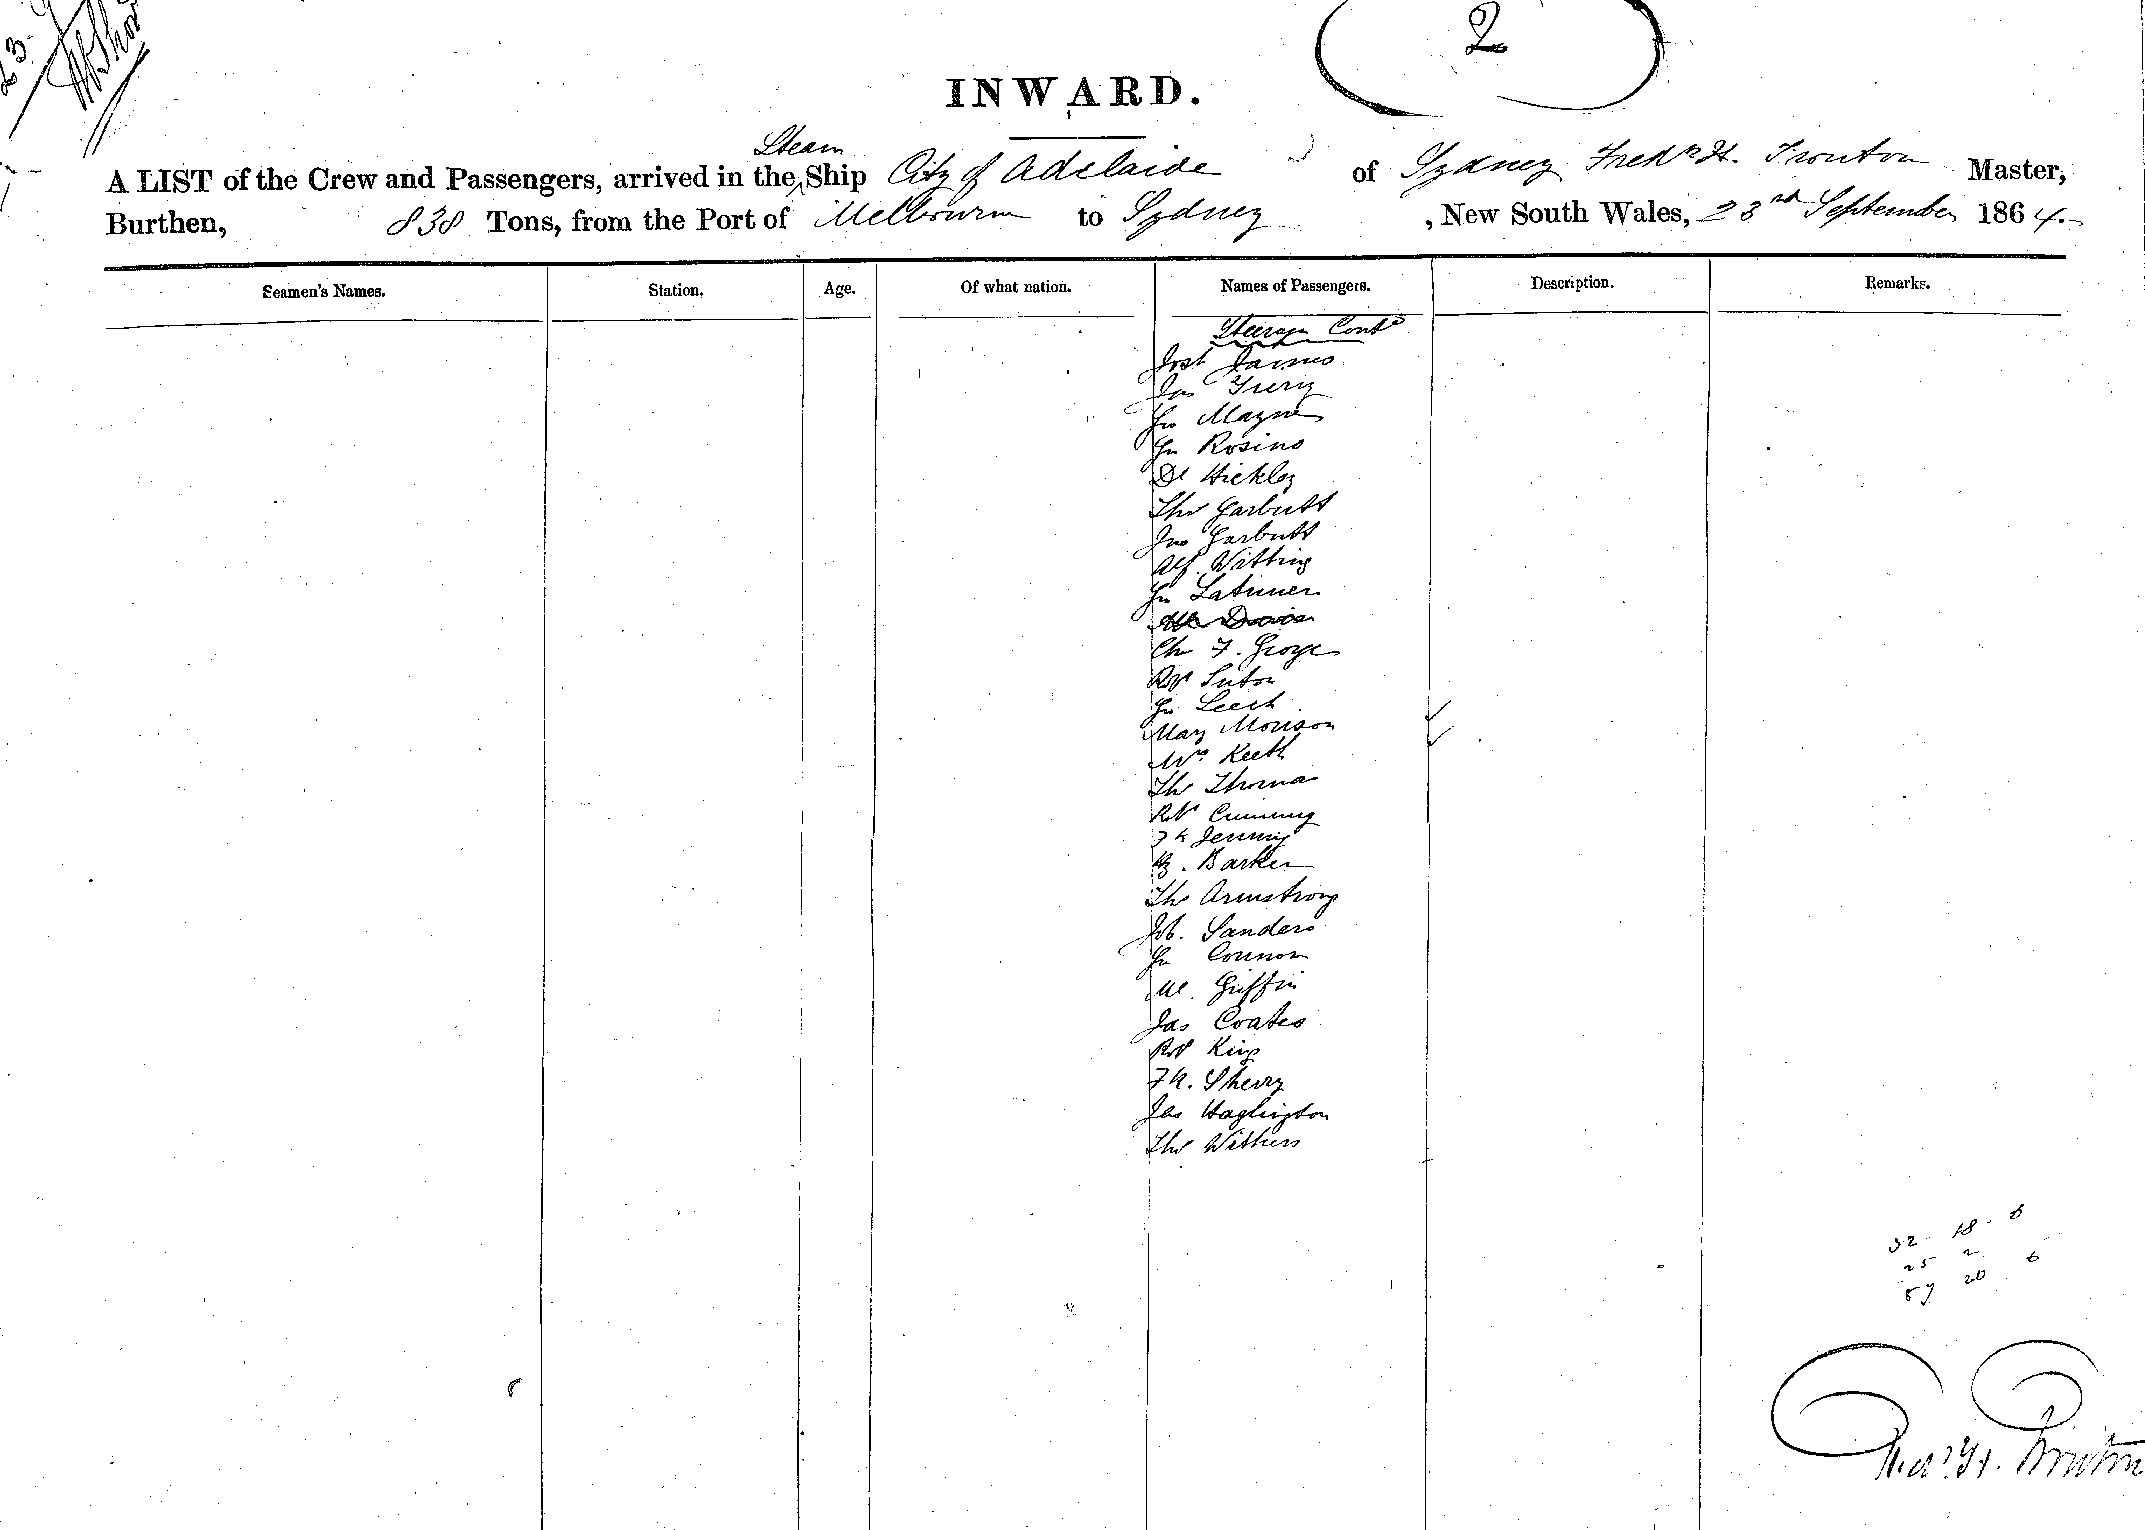 23.
2
INWARD.
Steam
A LIST of the Crew and Passengers, arrived in the Ship City of Adelaide of Sydney Fredk H. Trouton Master,
Burthen, 838 Tons, from the Port of Melbourne to Sydney , New South Wales, 23rd September 1864.
Seamen's Names. Station. Age. Of what nation. Names of Passengers. Description. Remarks.
Steerage Contd
James
Jas
Jno Mayne
Jno Rosino
Dl Hickley
Tho Garbutt
Jno Garbutt
Alf. Witting
Jno Latimer
Davis
Ch F. George
Robt Suton
Jno Leech
Mary Morison
Mrs Keeth
Tho Thomas
Robt Cumming
Fk
Barker
Tho Armstrong
Job. Sanders
Jno Connor
Ml. Griffin
Jas Coates
Robt King
Fk. Sherry
Jas Haglington
Tho Withers
32 18 6
25 2
57 20 6
Fredk H. Trouton